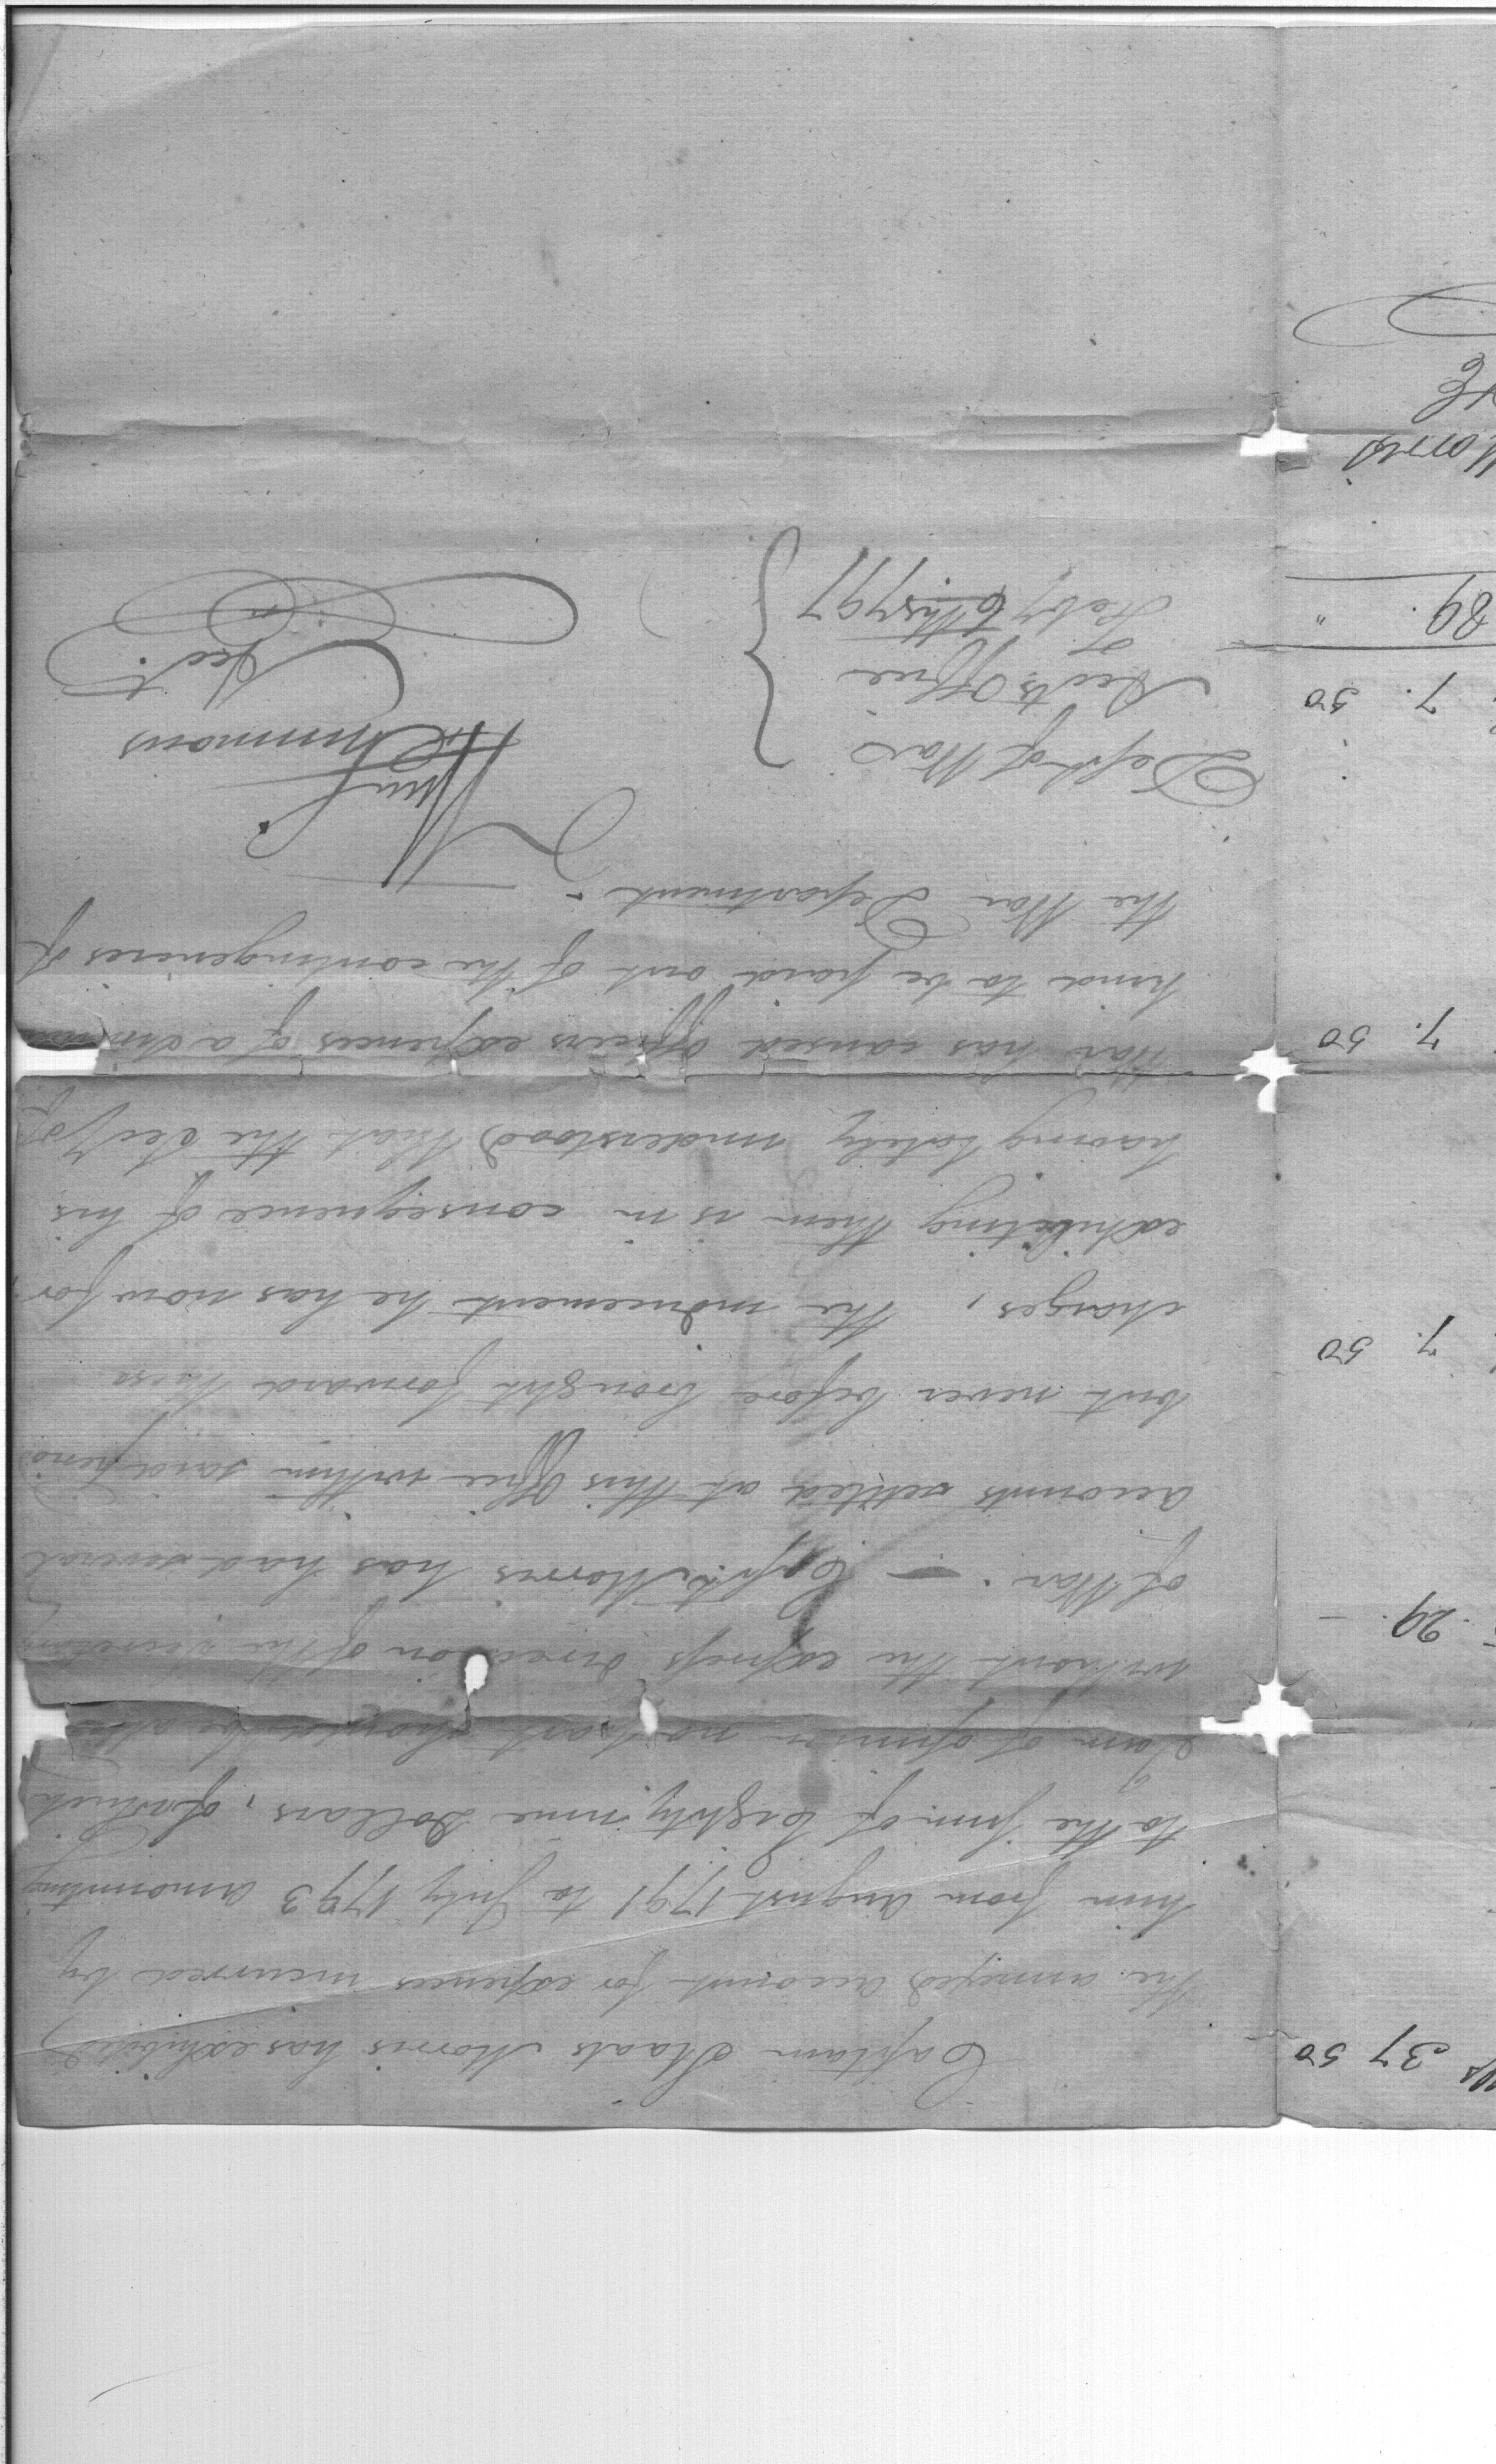 Captain Staats Morris has exhibited
the annexed account for expences incurred by
him from August 1791 to July 1793 amounting
to the sum of Eighty nine Dollars, of which
I am of opinion no part should be
without the express direction of the Secretary
of War. — Capt. Morris has had several
accounts settled at this Office within said period
but never before brought forward these
charges, the inducement he has now for
exhibiting them is in consequence of his
having lately understood that the Secy of
War has caused officers expences of a similar
kind to be paid out of the contingencies of
the War Department. -
Dept of War
Accts Office
Feby 6th 1797
Wm Simmons
Acct.
37 50
29. —
7. 50
7. 50
7. 50
89. "
Morris